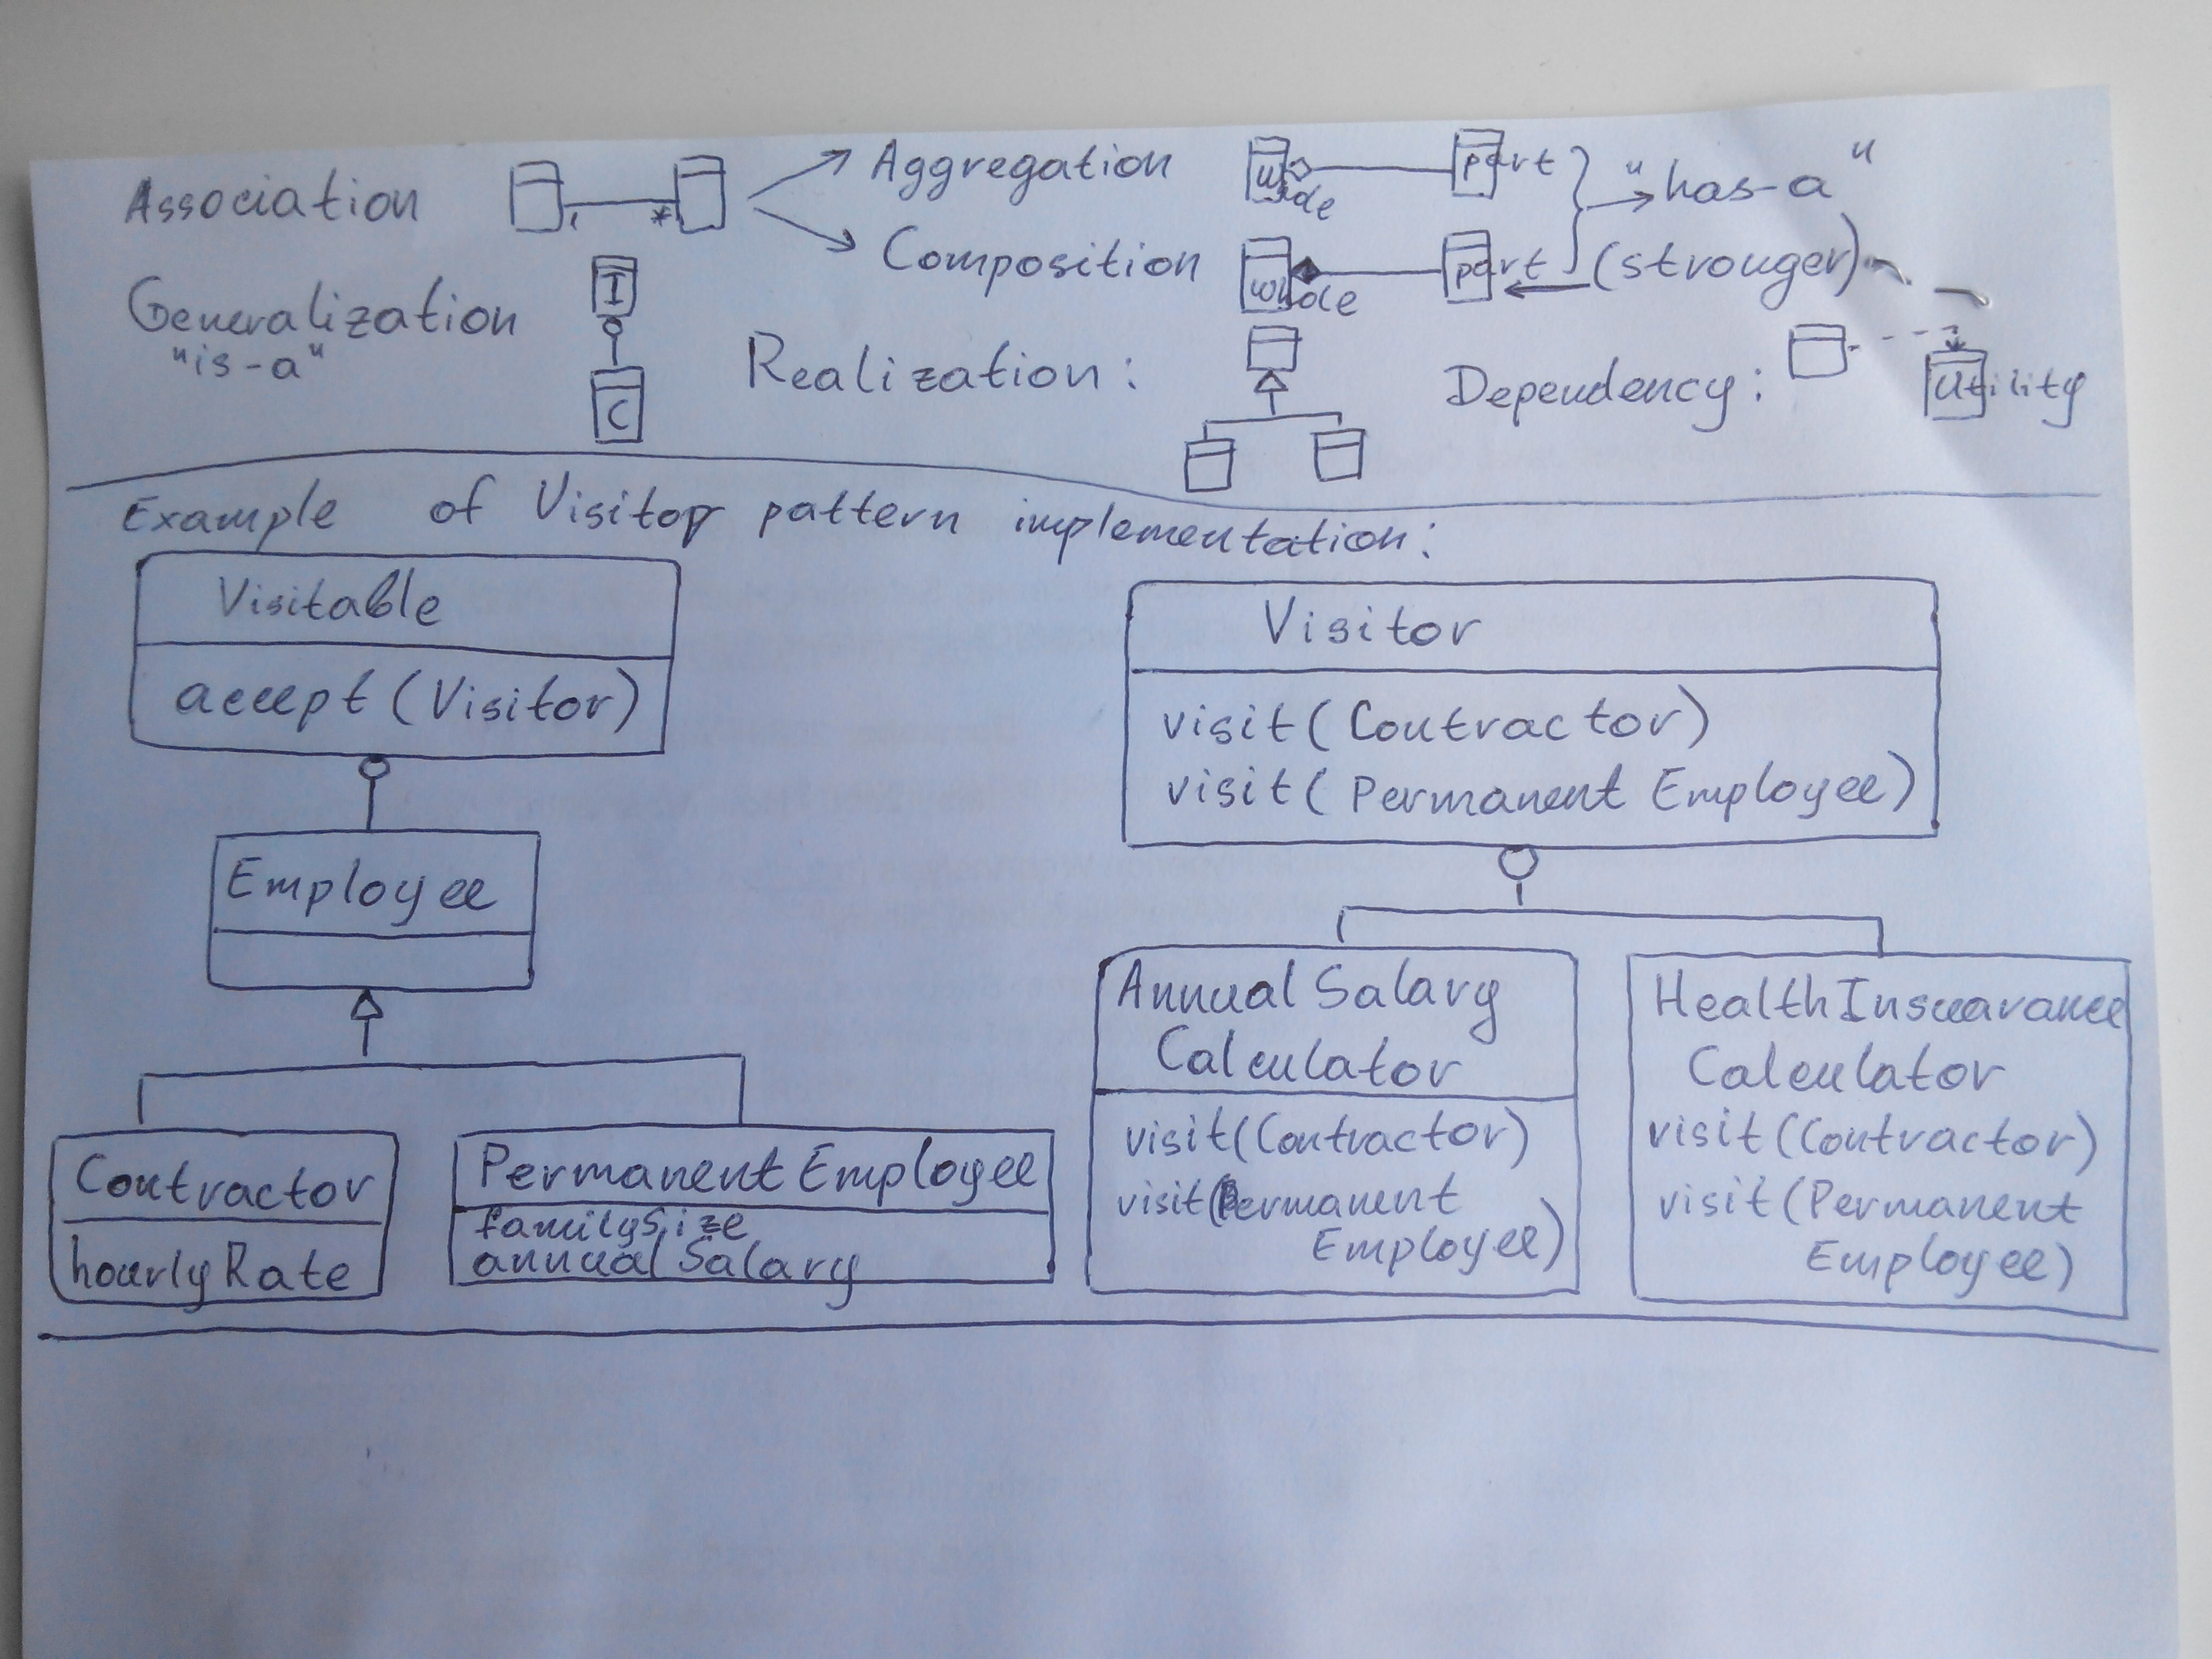 Association 1 * Aggregation whole part "has-a"
Composition whole part (stronger)
Generalization I
"is-a" C Realization: Dependency: Utility
Example of Visitor pattern implementation:
Visitable
accept (Visitor)
Employee
Contractor
hourlyRate
PermanentEmployee
familySize
annualSalary
Visitor
visit(Contractor)
visit( Permanent Employee)
AnnualSalary
Calculator
visit(Contractor)
visit(Permanent
Employee)
HealthInsuarance
Calculator
visit(Contractor)
visit(Permanent
Employee)